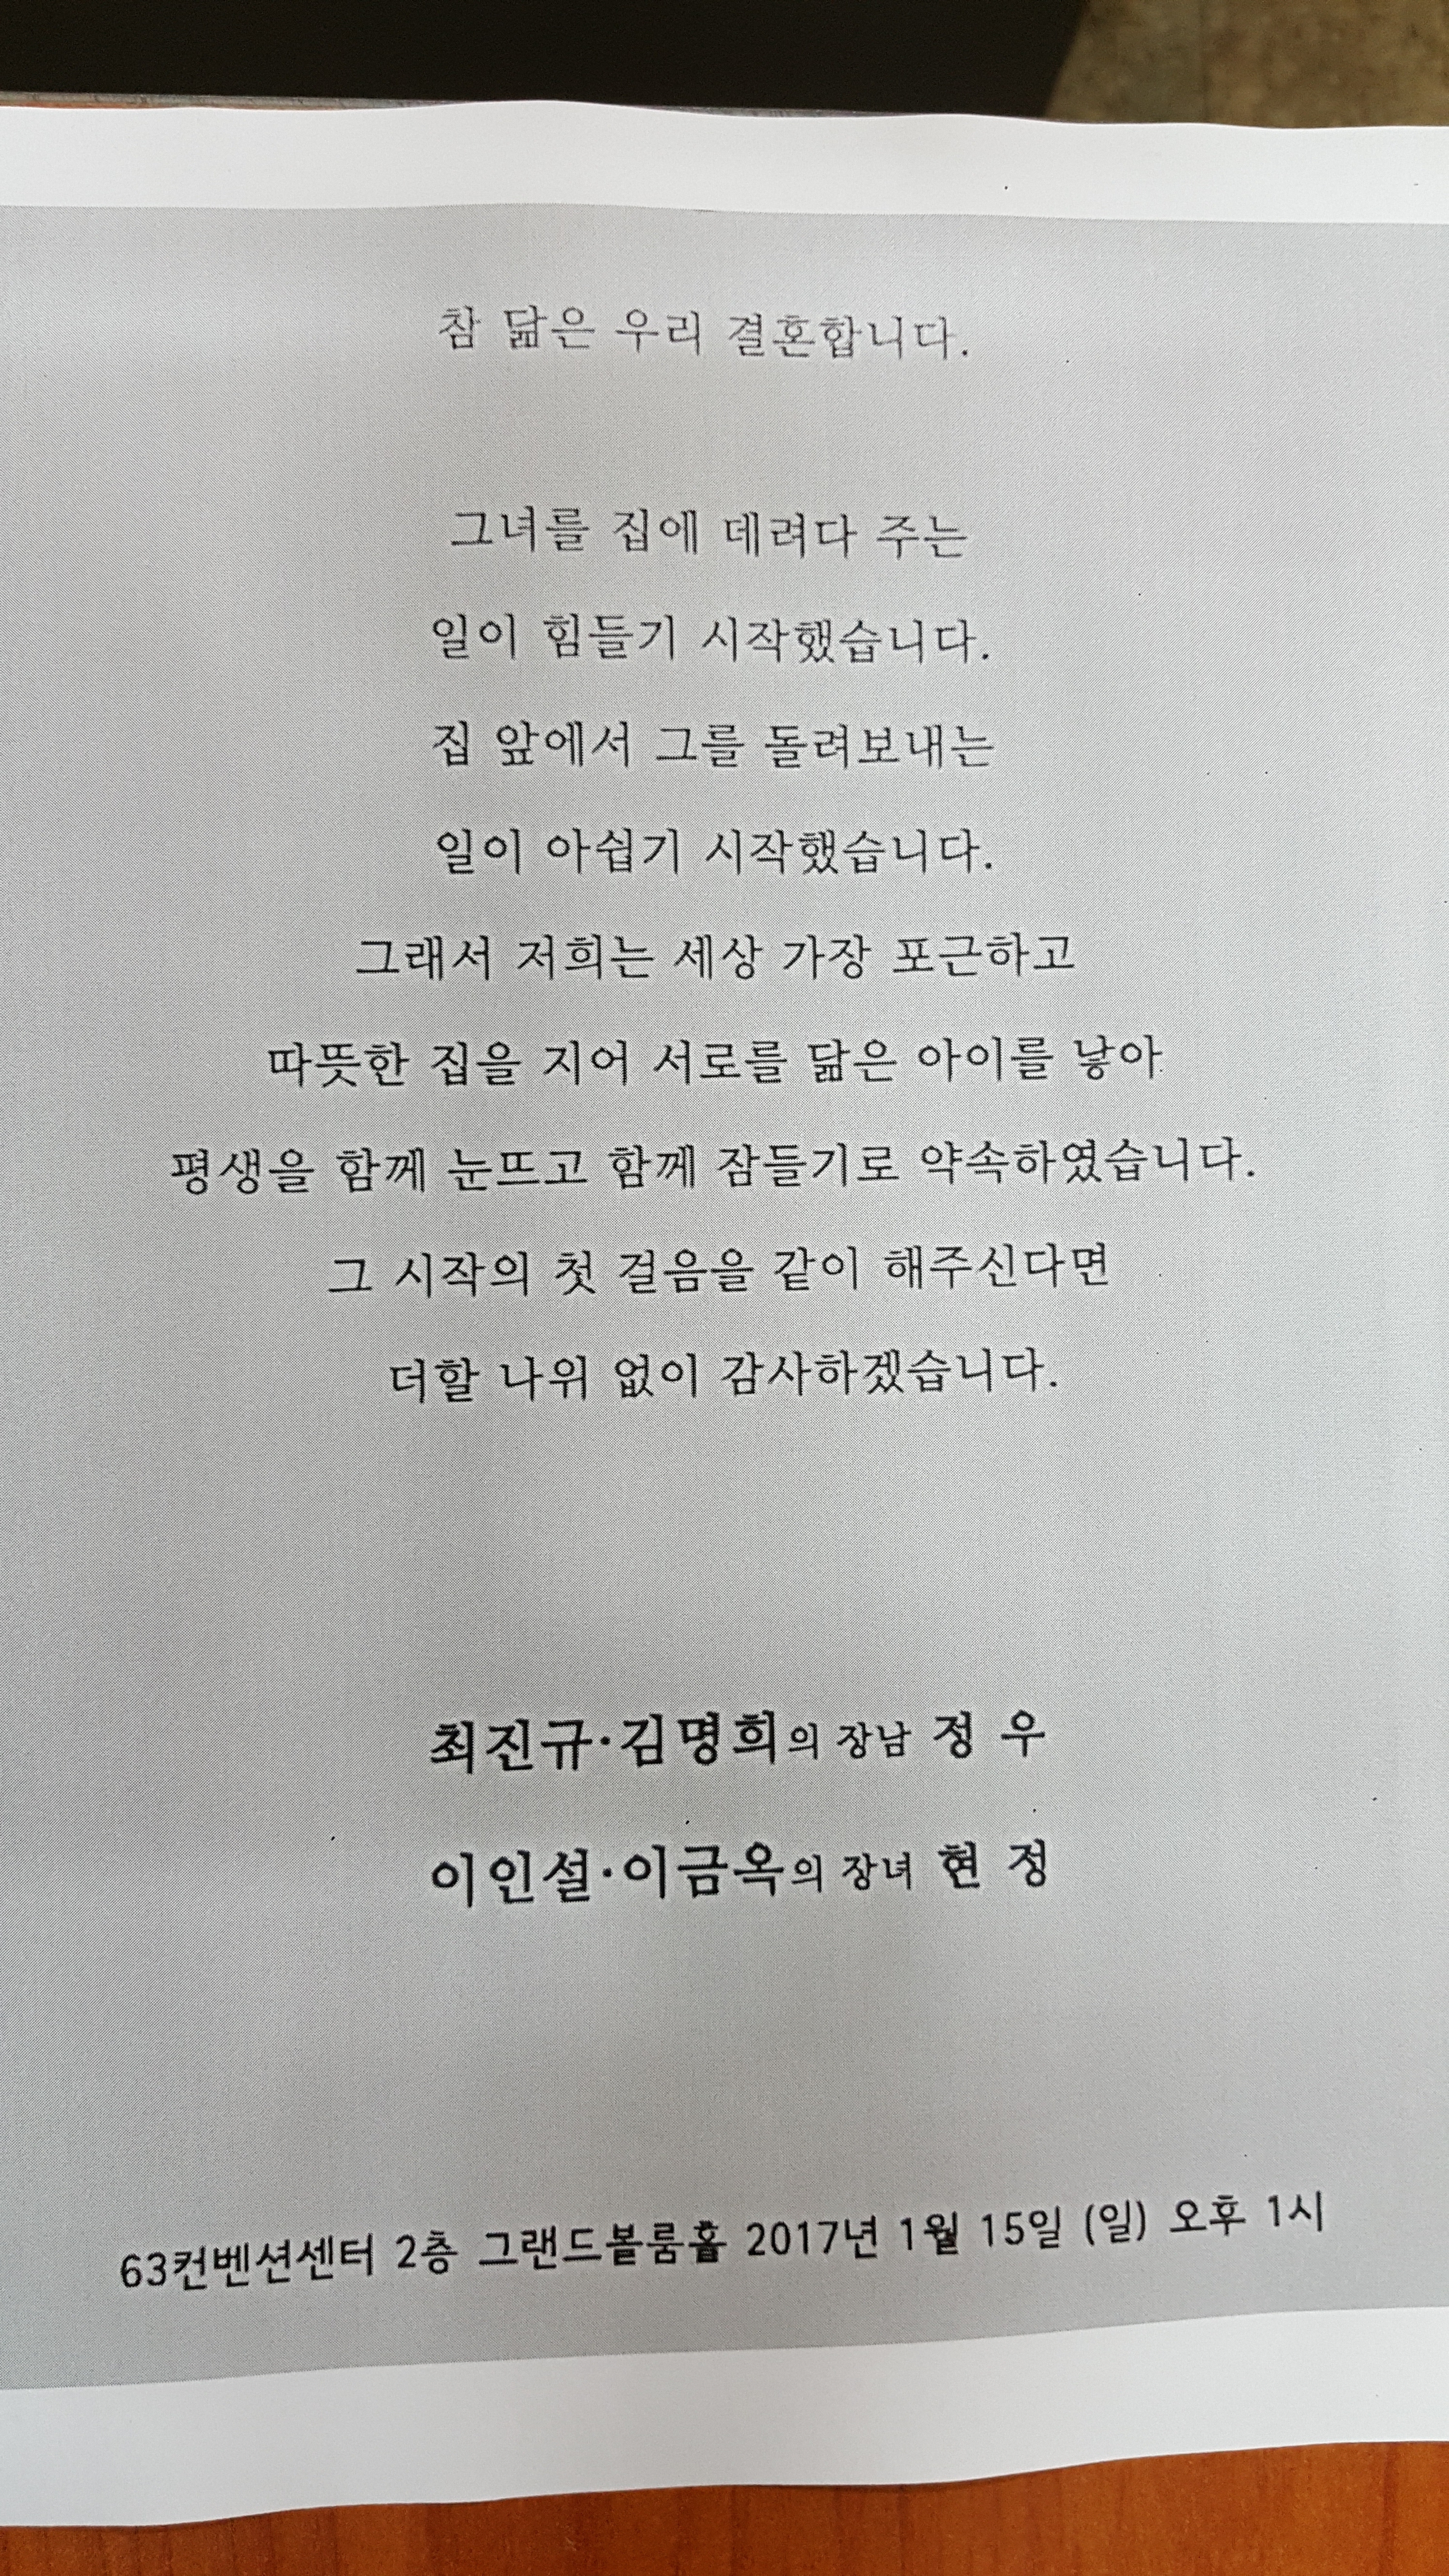 참 닮은 우리 결혼합니다.
그녀를 집에 데려다 주는
일이 힘들기 시작했습니다.
집 앞에서 그를 돌려보내는
일이 아쉽기 시작했습니다.
그래서 저희는 세상 가장 포근하고
따뜻한 집을 지어 서로를 닮은 아이를 낳아
평생을 함께 눈뜨고 함께 잠들기로 약속하였습니다.
그 시작의 첫 걸음을 같이 해주신다면
더할 나위 없이 감사하겠습니다.
최진규·김명희의 장남 정 우
이인설·이금옥의 장녀 현 정
63컨벤션센터 2층 그랜드볼룸홀 2017년 1월 15일 (일) 오후 1시